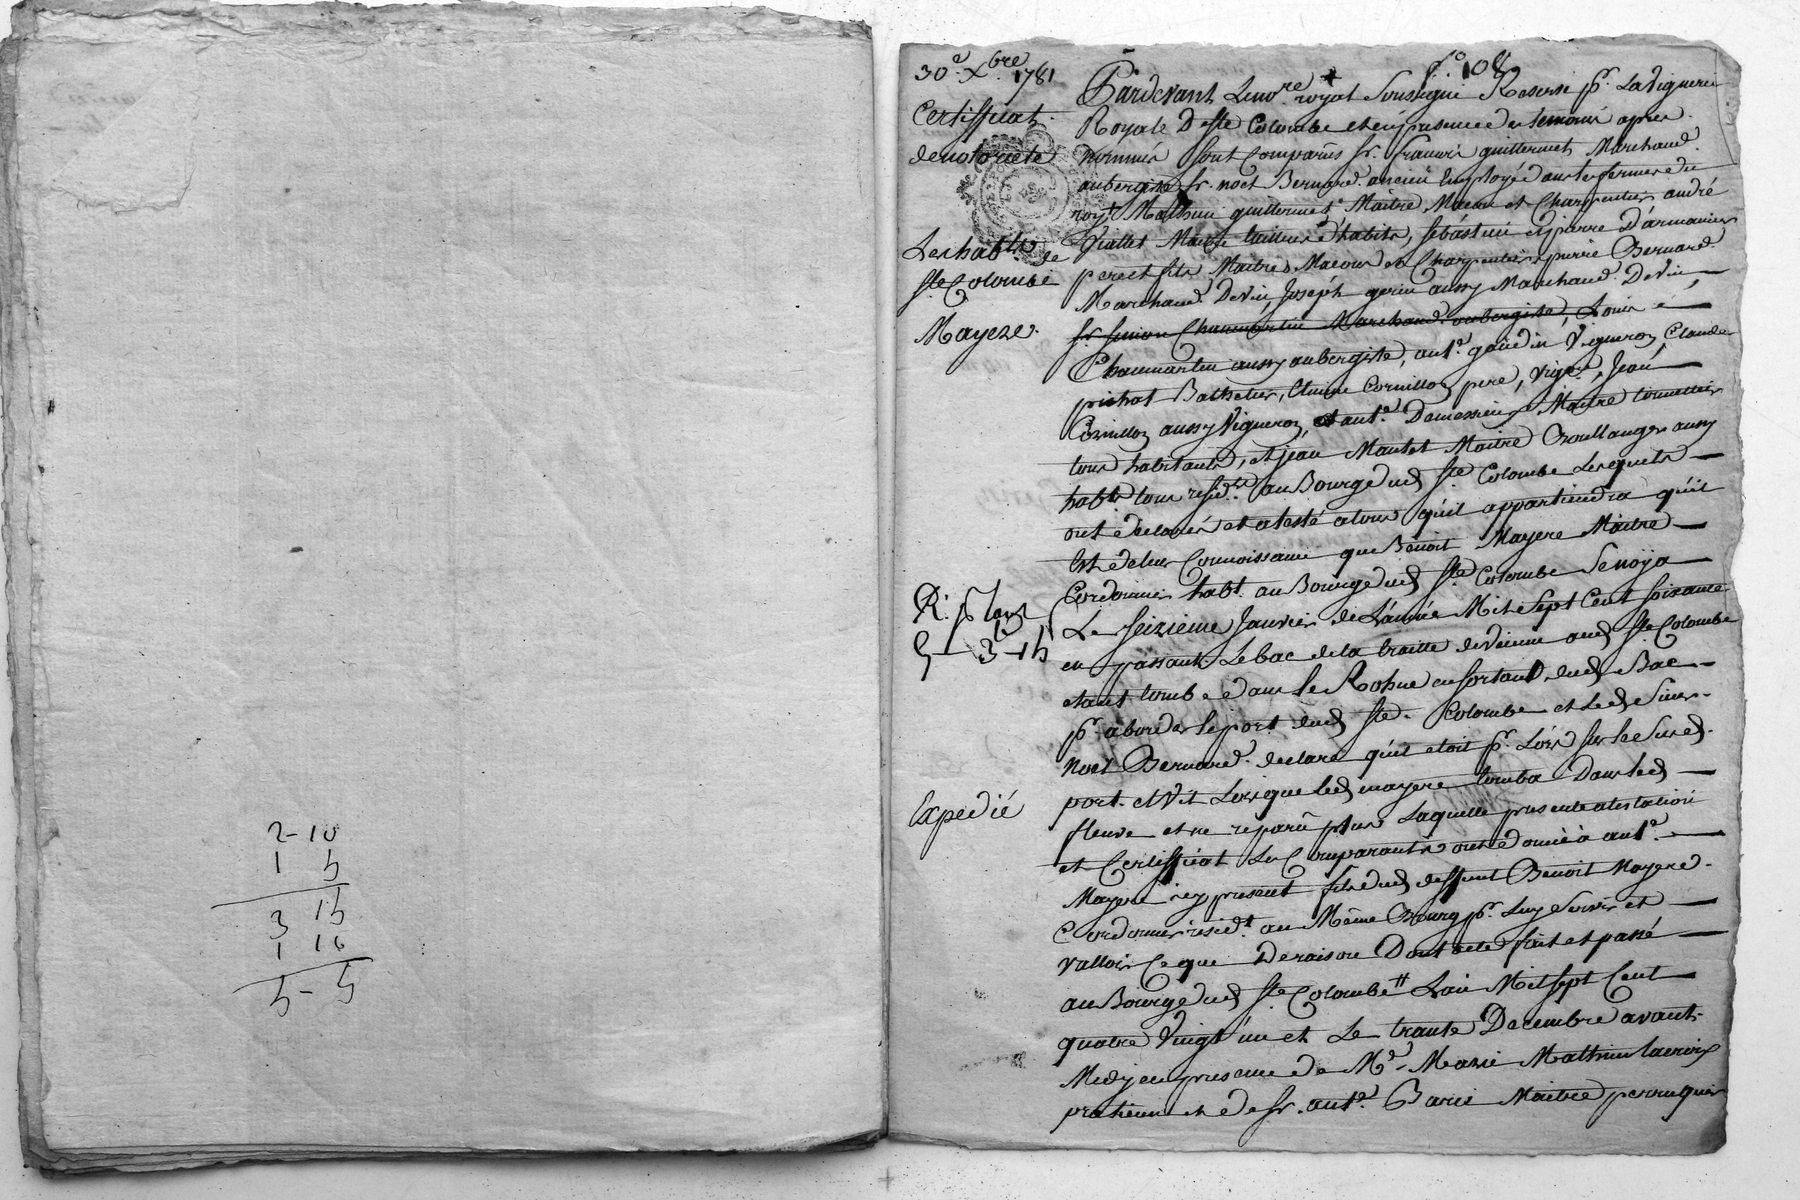 2-10
1 5
3 15
1 10
5-5
30e. Xbre. 1781
Certifficat
de notorieté
Les habts de
Ste Colombe
Mayere.
Expedié
fo. 108
Pardevant Le nore. royal Soussigné Reservé pr. La Viguerie
Royale De Ste Colombe et en presence des temoins apres
nommés sont Comparûs sr. francois guillermet Marchand
aubergiste sr. noel Bernard ancien Employé dans les fermes du
roy, Mathieu guillermet Maitre Macon et Charpentier, andré
Viallet Maitre tailleur d'habits, sébastien et pierre D'armancier
pere et fils Maitres Macons et Charpentiers, pierre Bernard
Marchand De Vin, Joseph gerin aussy Marchand De Vin
sr. simon Chaumartin Marchand aubergiste, Louis
Chaumartin aussy aubergiste, ante. gaudin Vigneron, Claude
prichat Bathelier, Cornillon pere, vignn., Jean
Cornillon aussy Vigneron, et ante. Demessieux Maitre tonnellier
tous habitants, et Jean Mantet Maitre Boullanger aussy
habt. tous residts. au Bourg dud. Ste Colombe Lesquels
ont declarés et atesté a tous qu'il appartiendra qu'il
Est de leur Connoissance que Benoit Mayere Maitre
Cordonnier habt. au Bourg dud. Ste Colombe Se noya
Le seizieme Janvier de L'année Mil Sept Cent soixante
en passant Le bac de la traille de Vienne aud. Ste Colombe
etant tombé dans Le Rohne en sortant dud. Bac
pr. aborder le port dud. Ste. Colombe et Led. sieur
noel Bernard declare qu'il etoit pr. Lors sur le Sused.
port et Vit Lorsque Led. mayere tomba Dans led.
fleuve et ne reparû plus Laquelle presente atestation
et Certifficat Les Comparants ont donné à ante.
Mayere icy present fils dud. deffunt Benoit Mayere
Cordonnier residt. au Même Bourg pr. Luy Servir et
valloir Ce que De raison Dont acte fait et passé
au Bourg dud. Ste Colombe L'an Mil sept Cent
quatre Vingt un et Le trante Decembre avant
Midy en presence de Me. Marie Mathieu Lacroix
praticien et de sr. ante. Barie Maitre perruquier